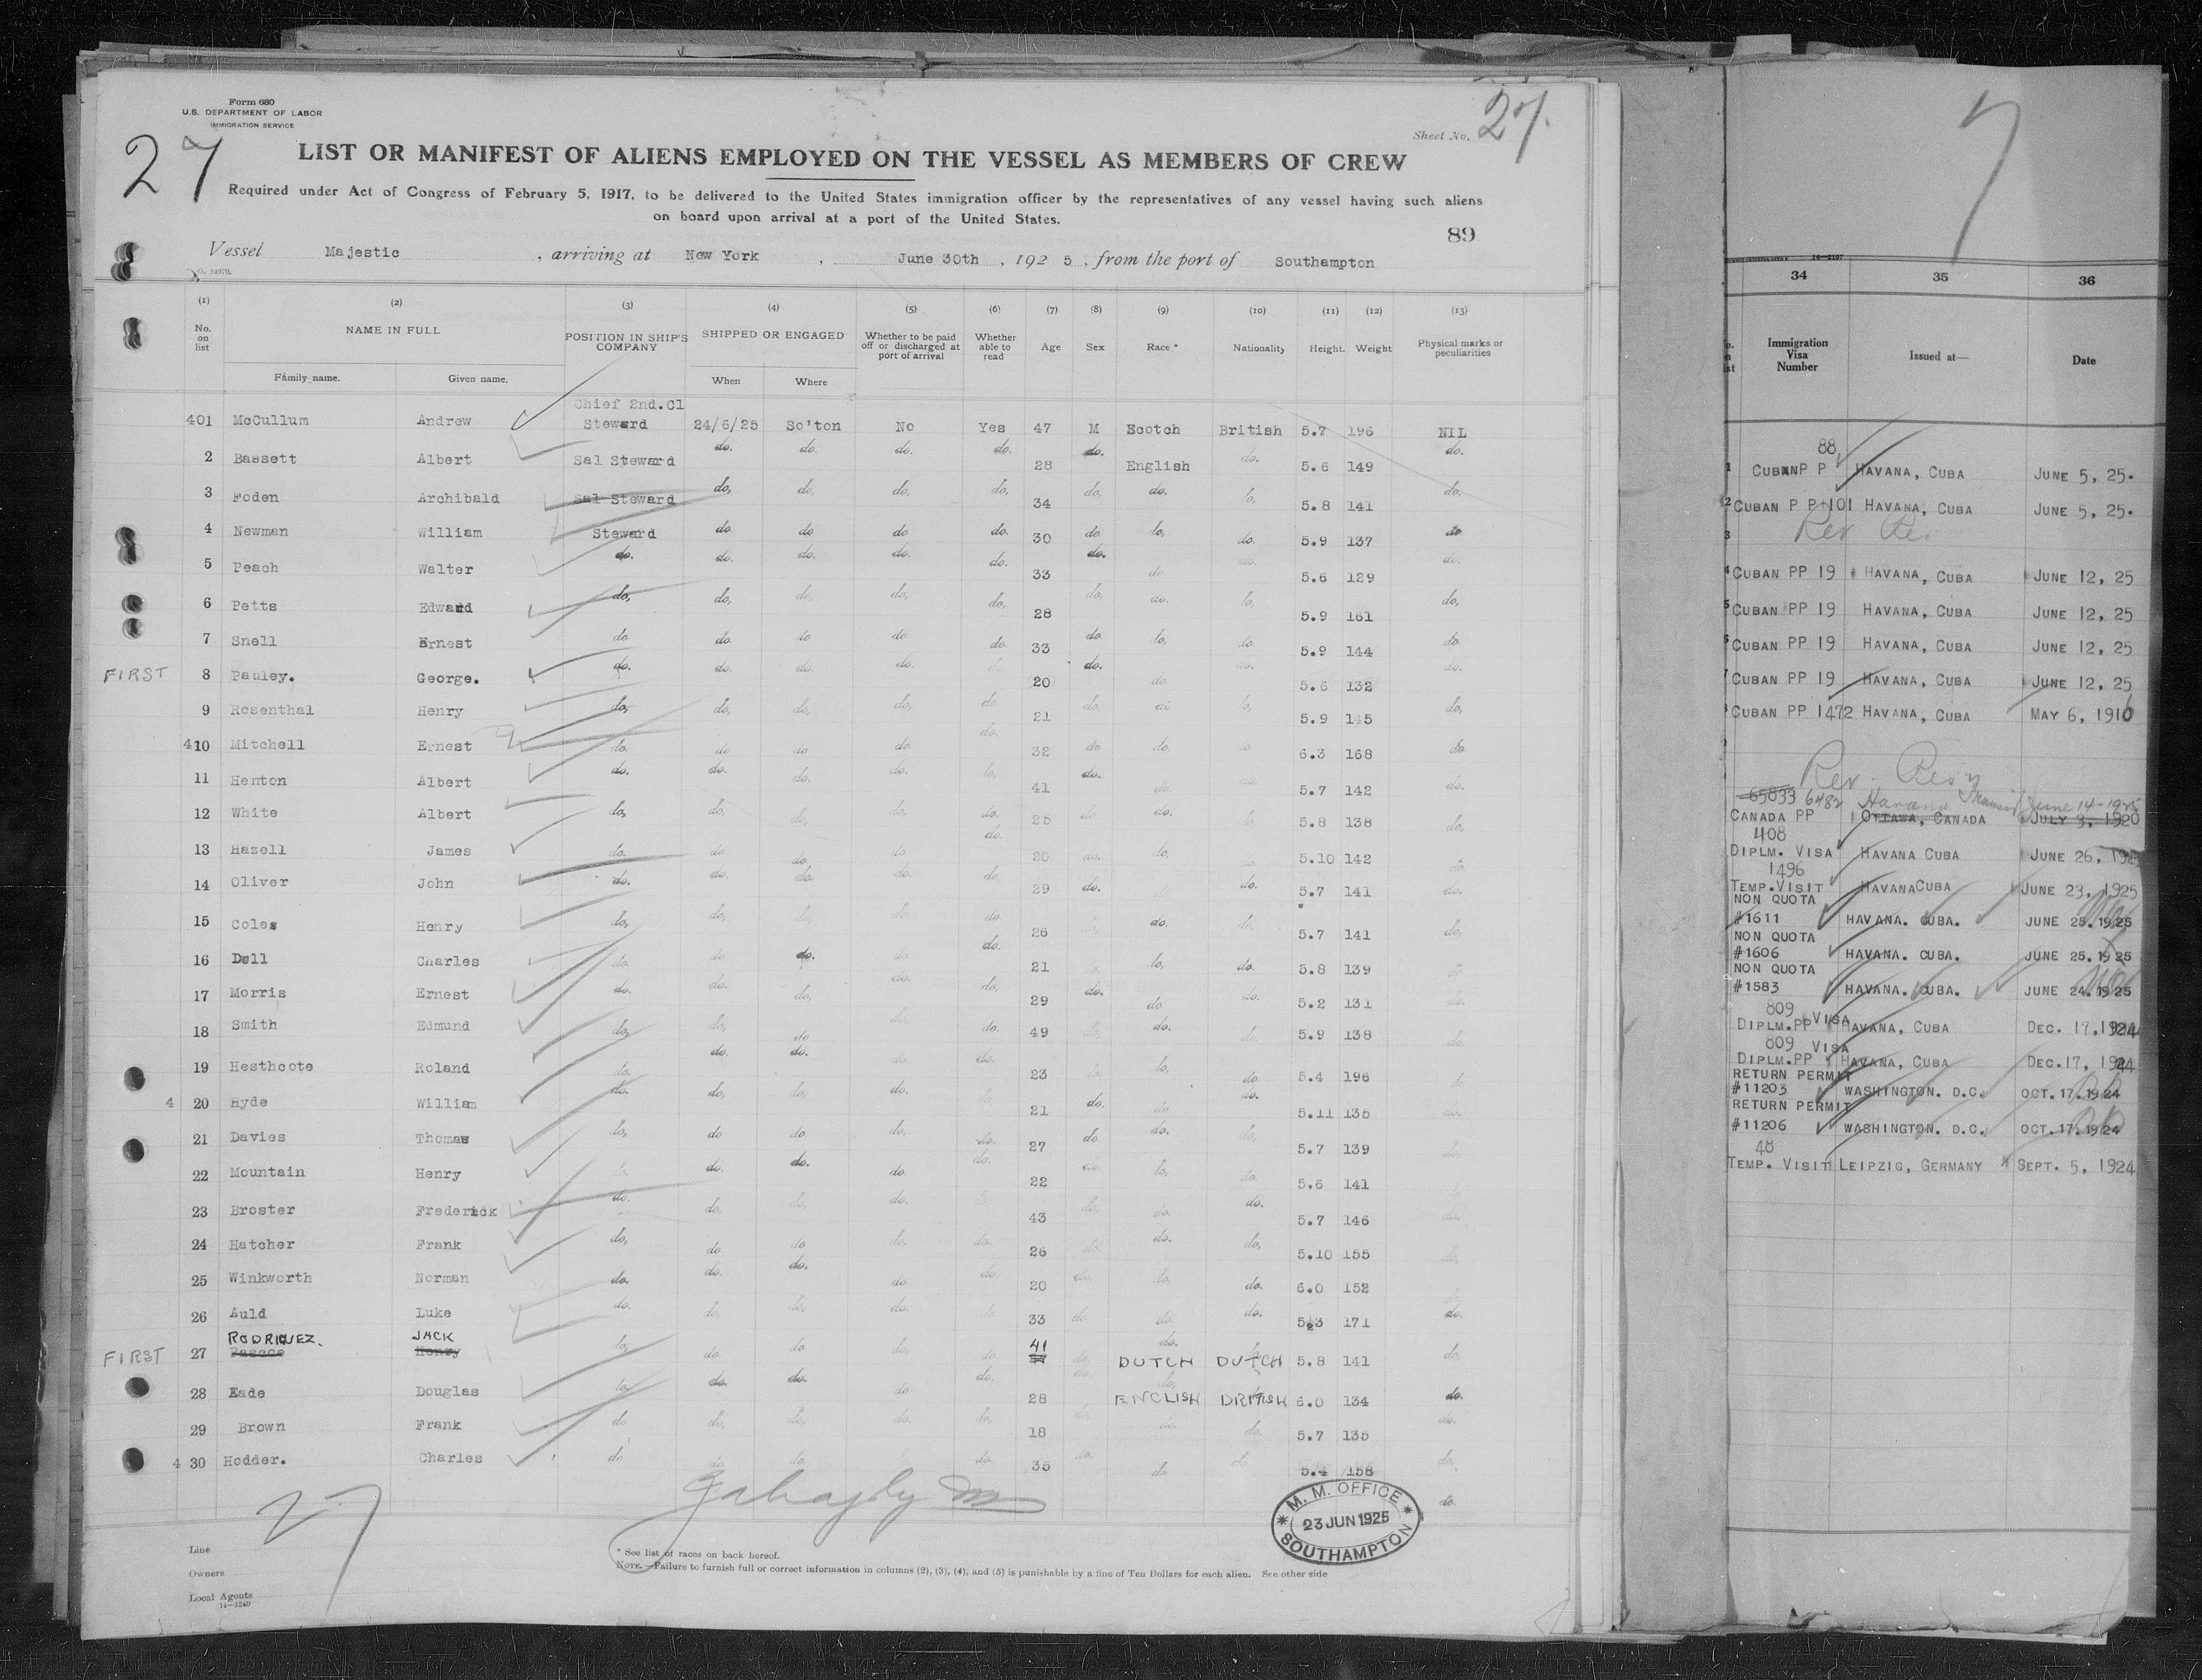 Form 680
U.S. DEPARTMENT OF LABOR
IMMIGRATION SERVICE
27
Sheet No. 27.
LIST OR MANIFEST OF ALIENS EMPLOYED ON THE VESSEL AS MEMBERS OF CREW
Required under Act of Congress of February 5, 1917, to be delivered to the United States immigration officer by the representatives of any vessel having such aliens
on board upon arrival at a port of the United States.
89
Vessel Majestic , arriving at New York , June 30th , 192 5 , from the port of Southampton
(1) (2) (3) (4) (5) (6) (7) (8) (9) (10) (11) (12) (13)
No. on list NAME IN FULL POSITION IN SHIP'S COMPANY SHIPPED OR ENGAGED Whether to be paid off or discharged at port of arrival Whether able to read Age Sex Race.* Nationality Height. Weight Physical marks or peculiarities
Family name. Given name. When Where
Chief 2nd.Cl
401 McCullum Andrew Steward 24/6/25 So'ton No Yes 47 M Scotch British 5.7 196 NIL
2 Bassett Albert Sal Steward do. do. do. do. 28 do. English do. 5.6 149 do.
3 Foden Archibald Sal Steward do, do, do, do, 34 do, do. do, 5.8 141 do,
4 Newman William Steward do do do do. 30 do do, do. 5.9 137 do
5 Peach Walter do. do. do. do. do. 33 do. do do. 5.6 129 do.
6 Petts Edward do, do, do, do, do, 28 do, do. do, 5.9 161 do,
7 Snell Ernest do do do do do. 33 do do, do. 5.9 144 do
FIRST 8 Pauley. George. do. do. do. do. do. 20 do. do. do. 5.6 132 do.
9 Rosenthal Henry do, do, do, do, do. 21 do, do do, 5.9 145 do,
410 Mitchell Ernest do. do do do do. 32 do do. do 6.3 168 do
11 Henton Albert do. do. do. do. do, 41 do. do. do. 5.7 142 do.
12 White Albert do, do, do, do, do. 25 do, do. do, 5.8 138 do,
13 Hazell James do. do do. do. do. 20 do. do, 5.10 142 do
14 Oliver John do. do. do. do. do. 29 do. do. 5.7 141 do.
15 Coles Henry do, do, do, do, do. 26 do, do. do, 5.7 141 do,
16 Dell Charles do do do. do do. 21 do. do, do. 5.8 139 do
17 Morris Ernest do. do. do, do. do, 29 do. do do. 5.2 131 do.
18 Smith Edmund do, do, do do, do. 49 do, do. 5.9 138 do.
19 Hesthcote Roland do. do. do. do. do. 23 do, do. 5.4 196
4 20 Hyde William do. do, do, do. 21 do. do do. 5.11 135 do.
21 Davies Thomas do, do do. do, do. 27 do do. do, 5.7 139 do,
22 Mountain Henry do. do. do. do. do. 22 do. do, do. 5.6 141 do.
23 Broster Frederick do. do, do, do. 43 do, do. do. 5.7 146 do.
24 Hatcher Frank do, do do do, do. 26 do. do. do, 5.10 155 do,
25 Winkworth Norman do. do. do. do. do. 20 do. do, do. 6.0 152
26 Auld Luke do. do, do, do. 33 do. do. do. 5.3 171 do.
RODRIQUEZ. JACK
FIRST 27 Pascoe Henry do, do do. do, do. 41 do, do. DUTCH DUTCH 5.8 141 do,
28 Eade Douglas do, do. do. do do. 28 do. ENGLISH BRITISH 6.0 134 do.
29 Brown Frank do. do, do, do. do, 18 do, do. do. 5.7 135 do.
4 30 Hodder. Charles do do do. do. 35 do. do do. 5.4 158 do,
do.
27
M. M. OFFICE
23 JUN 1925
SOUTHAMPTON
Line
Owners
Local Agents
14—1240
* See list of races on back hereof.
NOTE.—Failure to furnish full or correct information in columns (2), (3), (4), and (5) is punishable by a fine of Ten Dollars for each alien. See other side
7
34 35 36
Immigration Visa Number Issued at— Date
88
1 CUBAN P P HAVANA, CUBA JUNE 5, 25.
2 CUBAN P P 101 HAVANA, CUBA JUNE 5, 25.
3 Rev Res
4 CUBAN PP 19 HAVANA, CUBA JUNE 12, 25
5 CUBAN PP 19 HAVANA, CUBA JUNE 12, 25
6 CUBAN PP 19 HAVANA, CUBA JUNE 12, 25
7 CUBAN PP 19 HAVANA, CUBA JUNE 12, 25
8 CUBAN PP 1472 HAVANA, CUBA MAY 6, 1916
Rev.
65833 6482 Havana Transit June 14-1925
CANADA PP OTTAWA, CANADA JULY 3, 1920
408
DIPLM. VISA HAVANA CUBA JUNE 26,
1496
TEMP.VISIT HAVANA CUBA JUNE 23, 1925
NON QUOTA
#1611 HAVANA. CUBA. JUNE 25.1925
NON QUOTA
#1606 HAVANA. CUBA. JUNE 25.1925
NON QUOTA
#1583 HAVANA. CUBA. JUNE 24.1925
809 VISA
DIPLM.PP HAVANA, CUBA DEC. 17, 1924
809 VISA
DIPLM.PP HAVANA, CUBA DEC.17, 1924
RETURN PERMIT
#11203 WASHINGTON. D.C. OCT.17.1924
RETURN PERMIT
#11206 WASHINGTON. D.C. OCT.17.1924
48
TEMP. VISIT LEIPZIG, GERMANY SEPT. 5, 1924